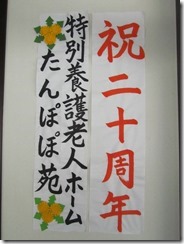 祝二十周年
特別養護老人ホーム
たんぽぽ苑